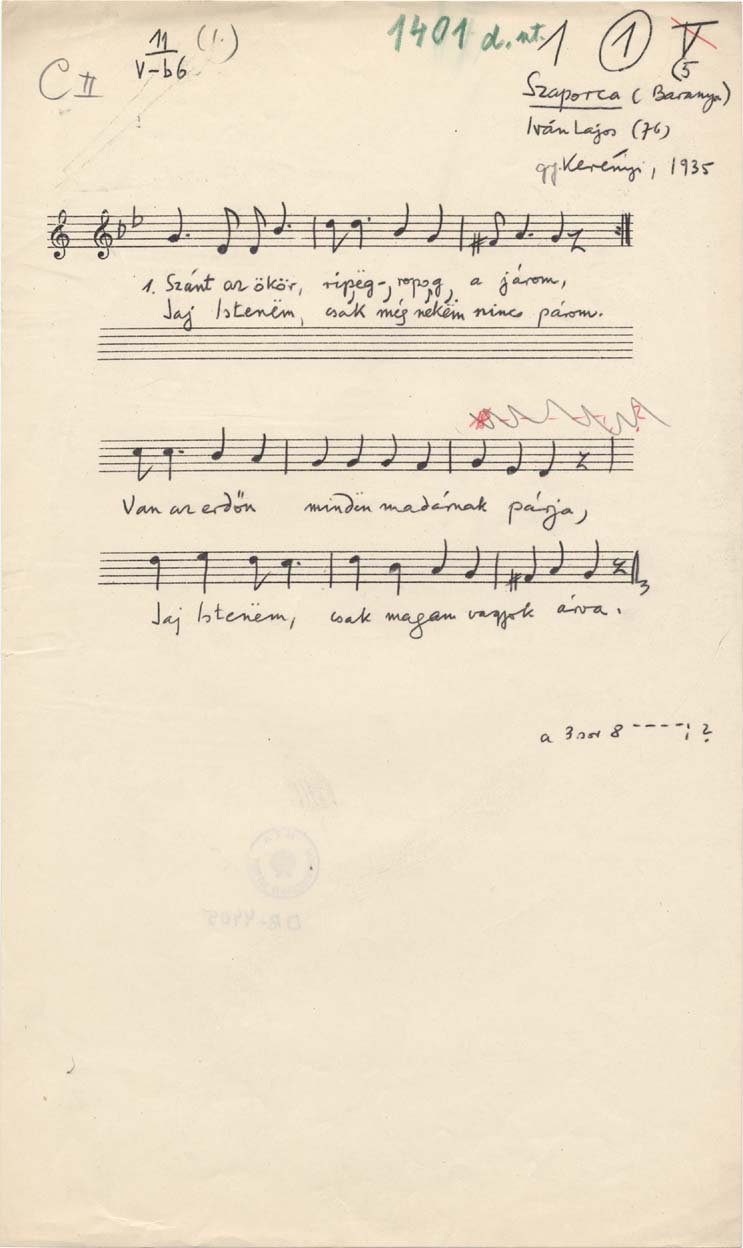 11 (1.)
V-b6
C II
1401 d. nt.
1 1 V
(5
Szaporca (Baranya)
Iván Lajos (76)
gy. Kerényi, 1935
1. Szánt az ökör, ripëg-, ropog, a járom,
Jaj Istenëm, csak még nekëm nincs párom.
Van az erdőn mindën madárnak párja,
Jaj Istenëm, csak magam vagyok árva.
3
a 3 sor 8 ----; ?
DR-4405